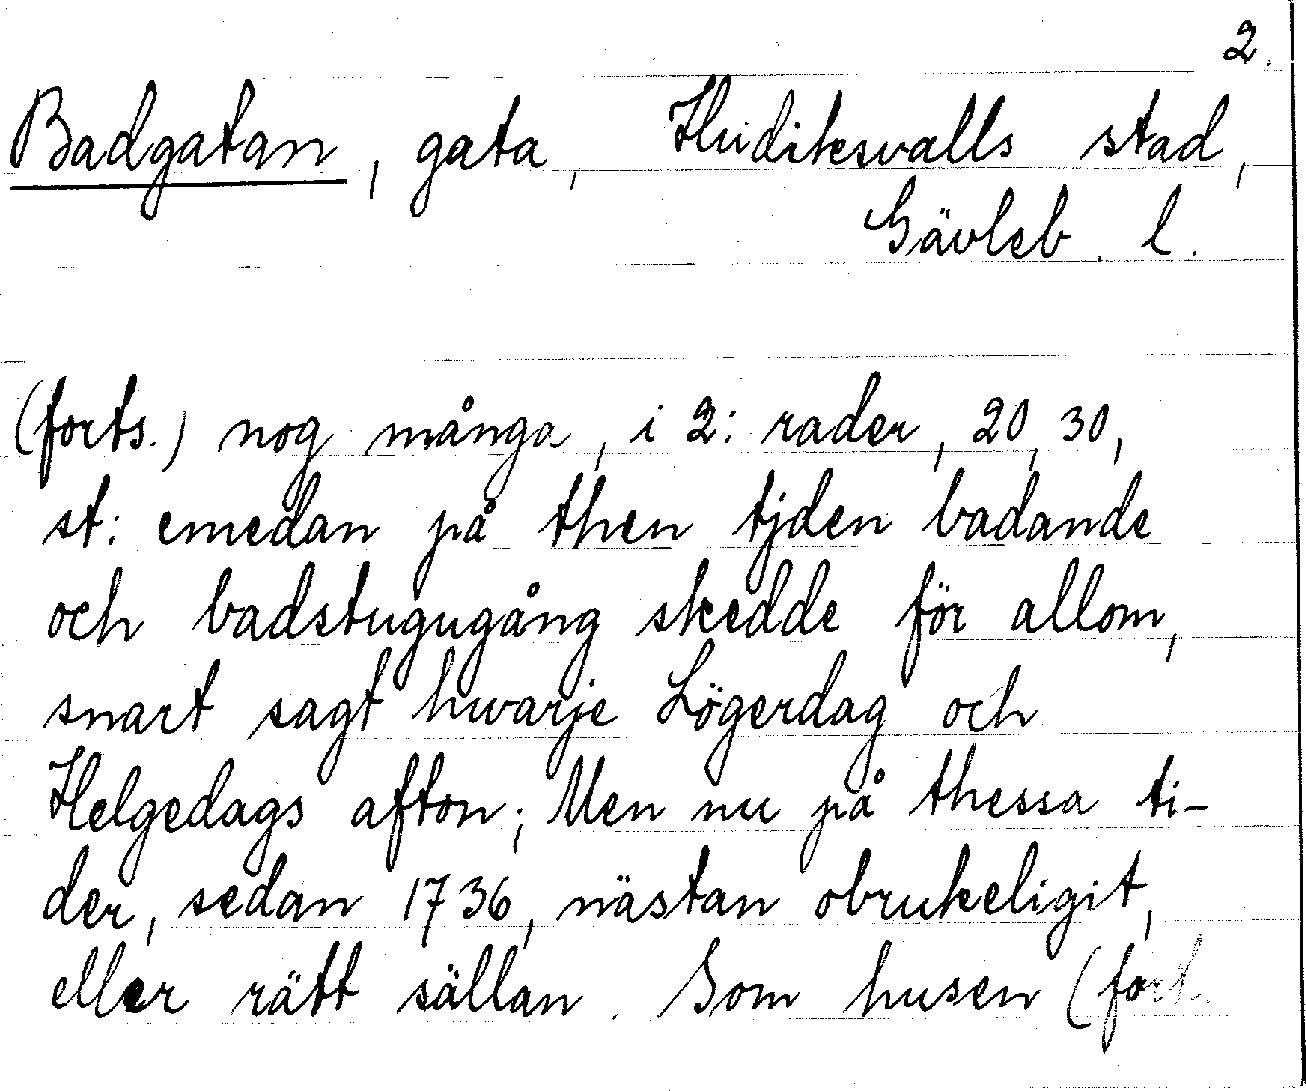 2.
Badgatan, gata, Hudiksvalls stad,
Gävleb. l.
(forts.) nog många, i 2: rader, 20, 30,
st: emedan på then tjden badande
och badstugugång skedde för allom,
snart sagt hwarje Lögerdag och
Helgedags afton; Men nu på thessa ti-
der, sedan 1736, nästan obrukeligit,
eller rätt sällan. Som husen (fort